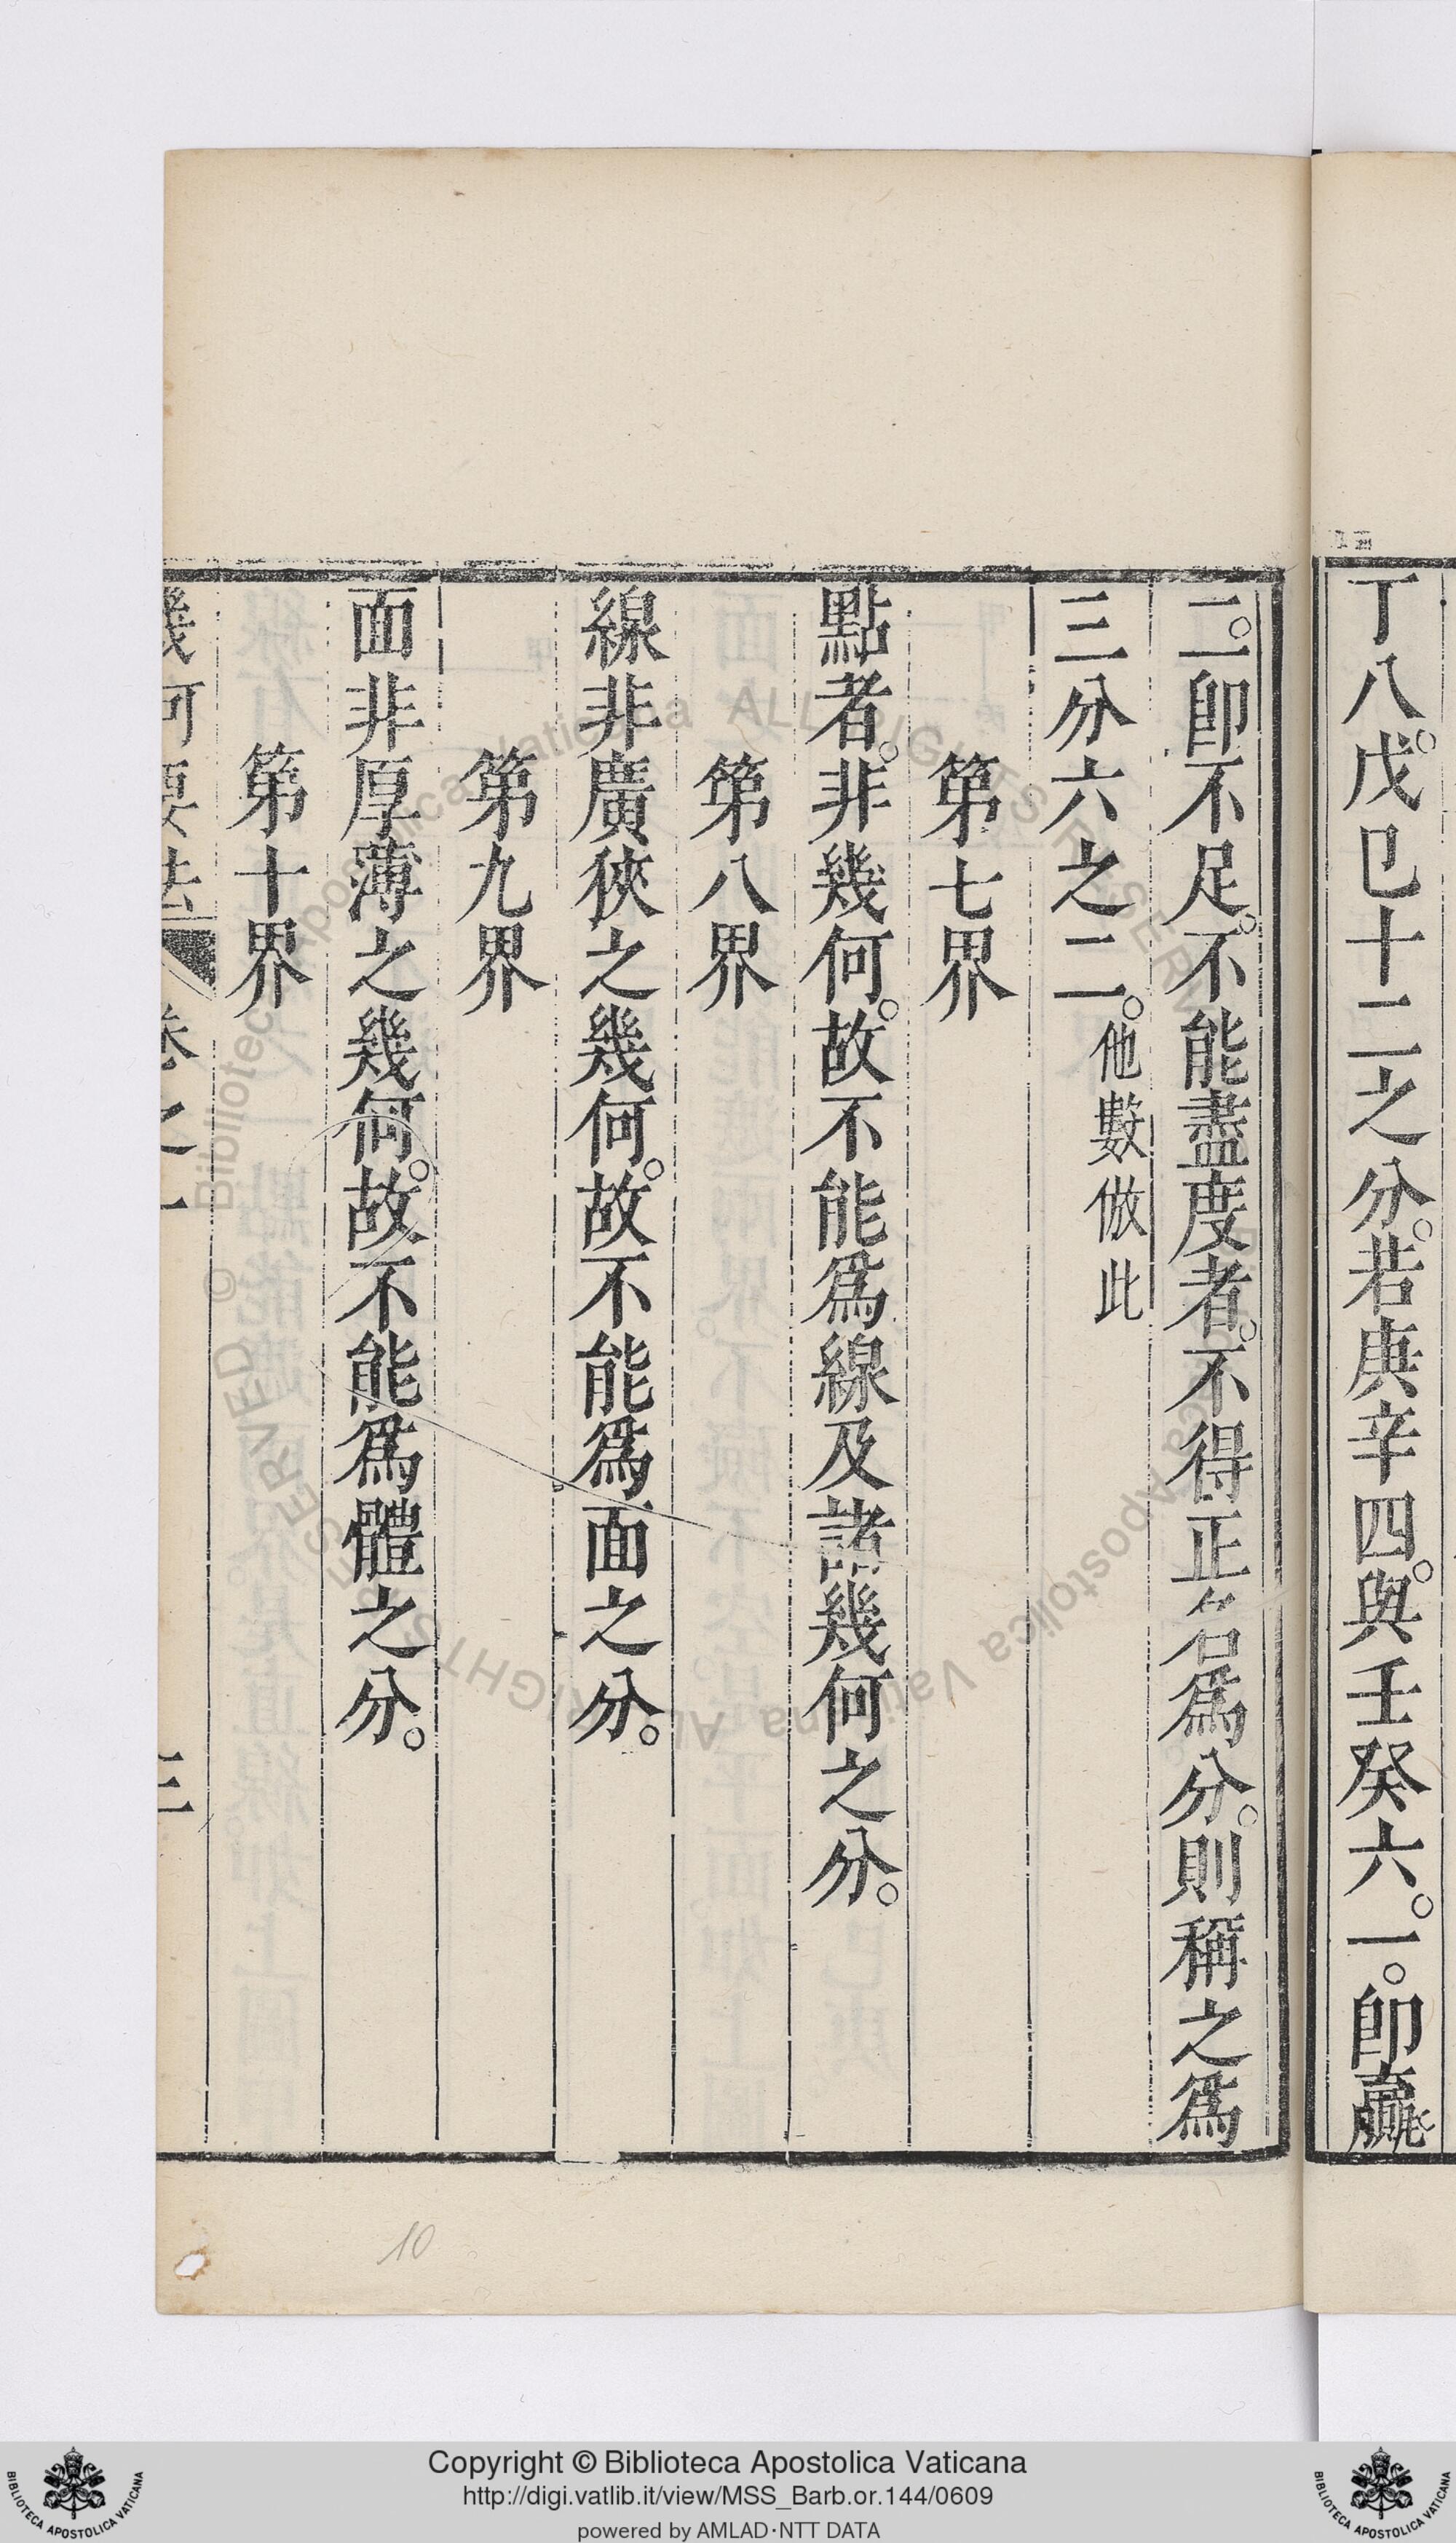 丁八。戊巳十二之分。若庚辛四。與壬癸六。一。卽贏
二。卽不足。不能盡度者。不得正名爲分。則稱之爲
三分六之二。他數倣此
第七界
點者。非幾何。故不能爲線及諸幾何之分。
第八界
線非廣狹之幾何。故不能爲面之分。
第九界
面非厚薄之幾何。故不能爲體之分。
第十界
幾何要法 卷之一 三
10
© Biblioteca Apostolica Vaticana ALL RIGHTS RESERVED
Copyright © Biblioteca Apostolica Vaticana
http://digi.vatlib.it/view/MSS_Barb.or.144/0609
powered by AMLAD·NTT DATA
BIBLIOTECA APOSTOLICA VATICANA
BIBLIOTECA APOSTOLICA VATICANA